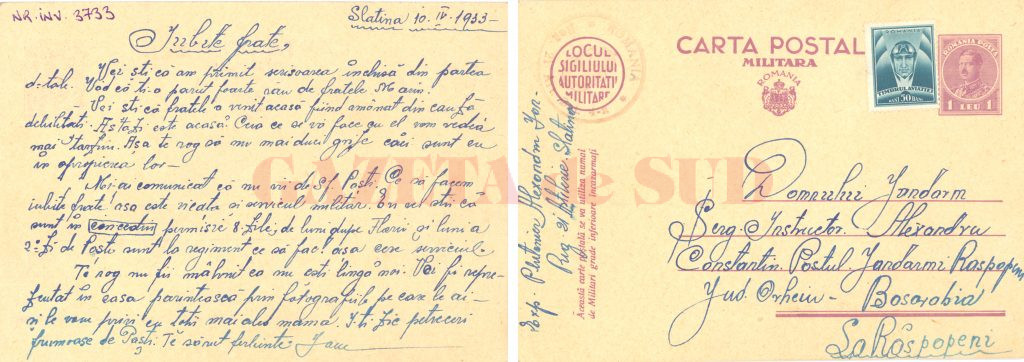 NR. INV. 3733
Slatina 10. IV. 1933 -
Iubite frate,
Vei ști că am primit scrisoarea închisă din partea
d-tale. Văd că ți-a părut foarte rău de fratele
Vei ști că fratele a venit acasă fiind amânat din cauză
debilității. Astăzi este acasă. Ceia ce se va face cu el vom vedea
mai târziu. Așa te rog să nu mai duci grije căci sunt eu
în apropierea lor -
Ne-ai comunicat că nu vii de Sf. Paști. Ce să facem
iubite frate, așa este vieața și serviciul militar. Eu vei ști că
sunt în concediu permisie 8 zile, de luni după Florii și luni a
2-a zi de Paști sunt la regiment ce să fac! așa cere serviciul.
Te rog nu fii mâhnit că nu ești lângă noi. Vei fi repre-
zentat în casa părintească prin fotografiile pe care le ai
și le vom privi cu toții mai ales mama. Îți zic petreceri
frumoase de Paști. Te sărut ferbinte
GAZETA de SUD
ROMANIA
LOCUL
SIGILIULUI
AUTORITAȚII
MILITARE
CARTA POSTALA
MILITARA
ROMANIA
ROMANIA
TIMBRUL AVIATIEI
BANI 50 BANI
ROMANIA POSTA
1 LEU 1
Exp Plutonier Alexandru Ion
Reg 21 Artilerie Slatina
Această carte poștală se va utiliza numai
de Militari grade inferioare încazarmați
Domnului Jandarm
Serg. Instructor Alexandru
Constantin. Postul Jandarmi Raspopeni
Jud. Orheiu - Basarabia
La Răspopeni